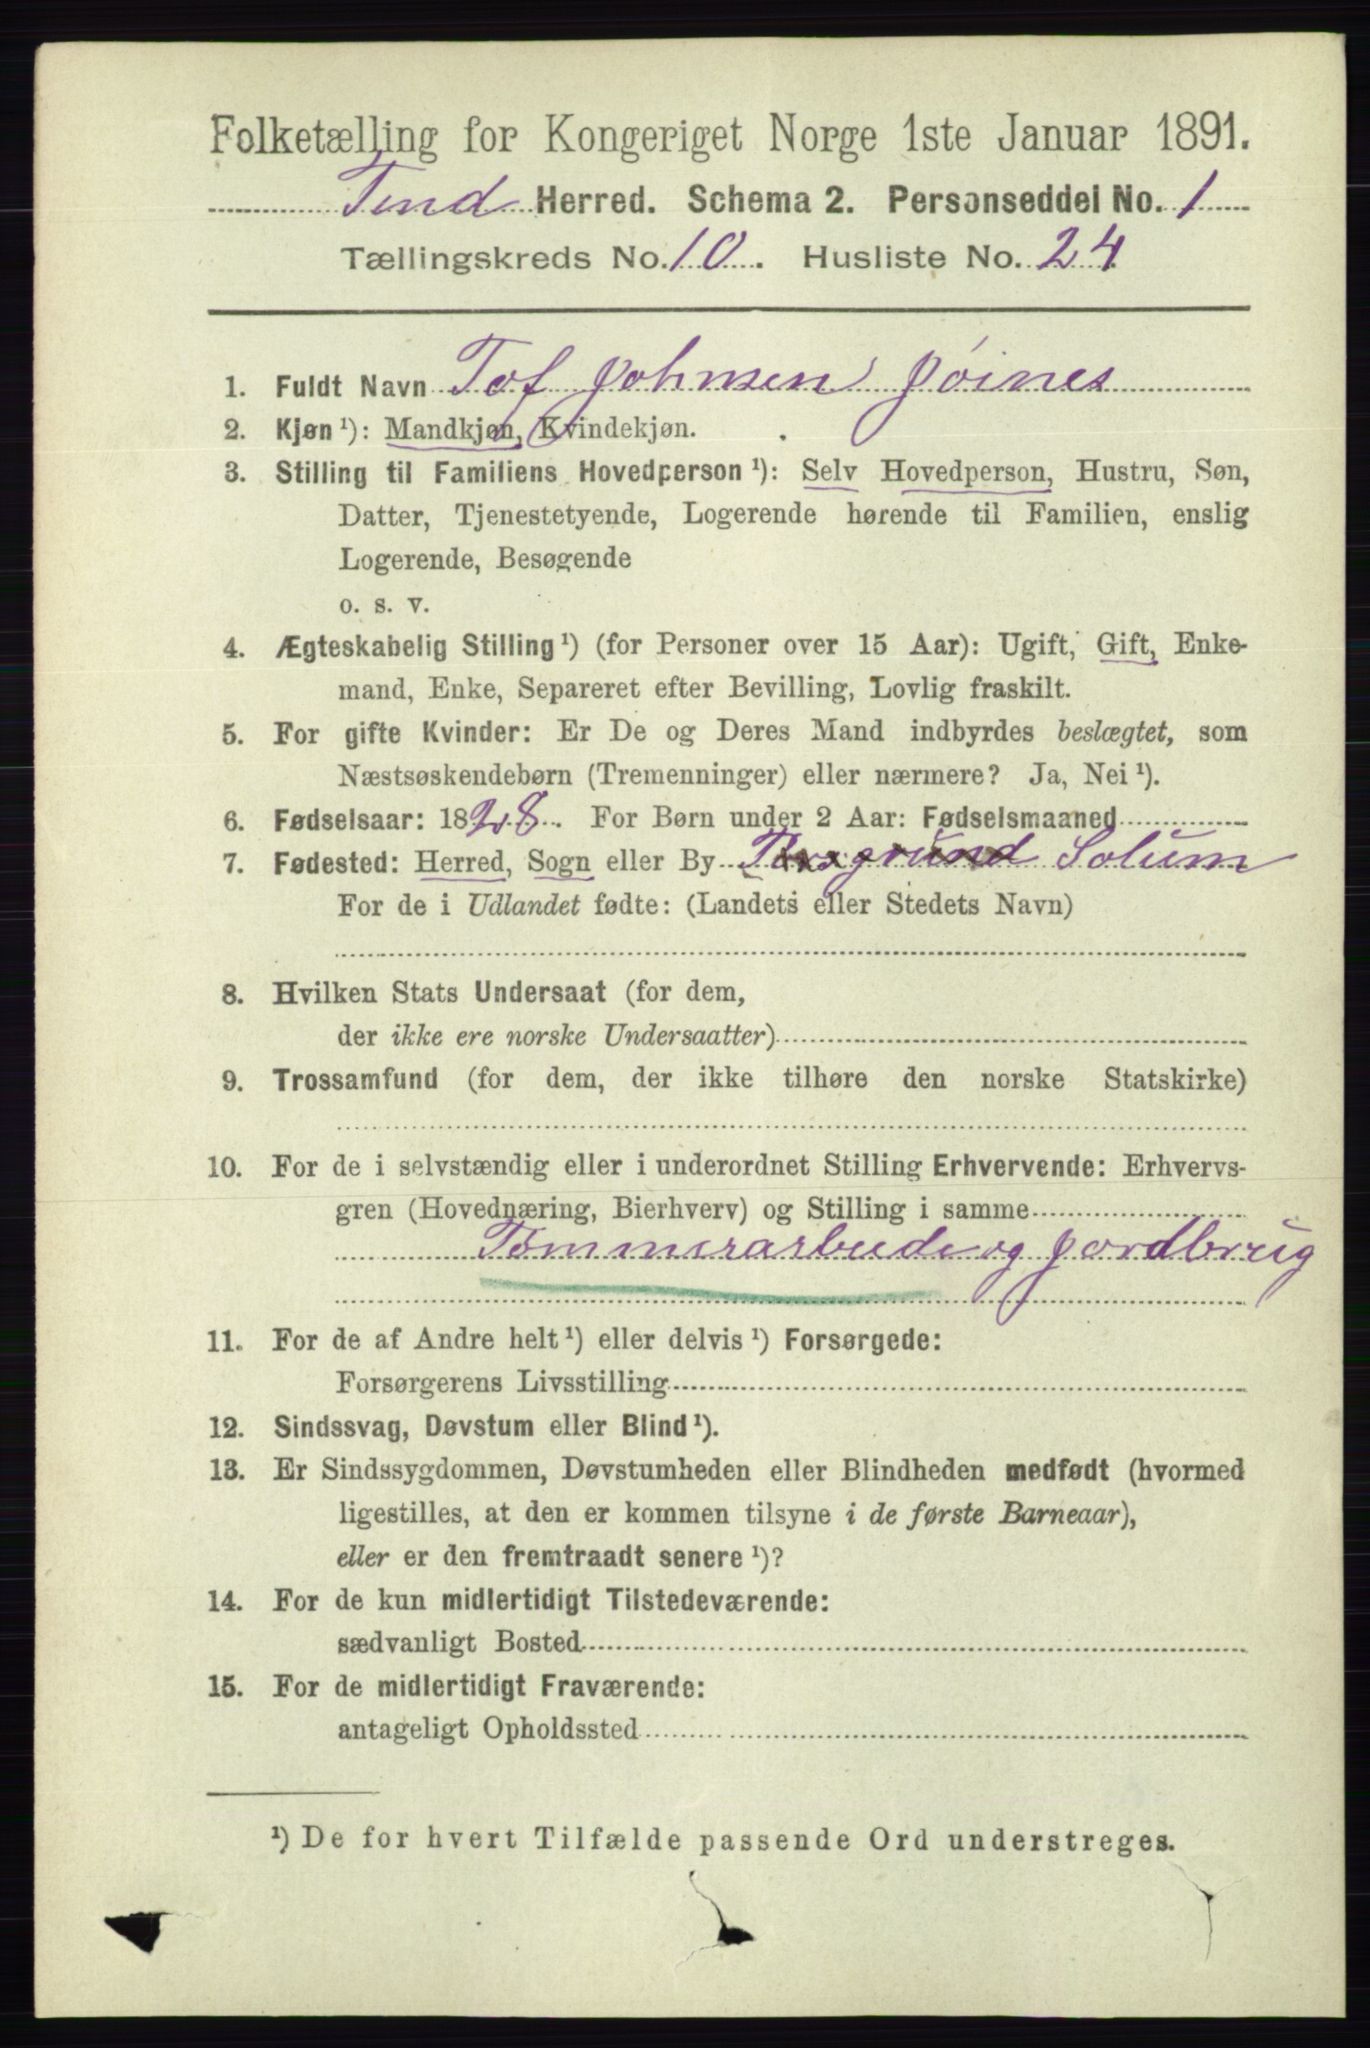 Folketælling for Kongeriget Norge 1ste Januar 1891.
Tind Herred. Schema 2. Personseddel No. 1
Tællingskreds No. 10. Husliste No. 24
1. Fuldt Navn Tof Johnsen Jøines
2. Kjøn ¹): Mandkjøn, Kvindekjøn.
3. Stilling til Familiens Hovedperson ¹): Selv Hovedperson, Hustru, Søn,
Datter, Tjenestetyende, Logerende hørende til Familien, enslig
Logerende, Besøgende
o. s. v.
4. Ægteskabelig Stilling ¹) (for Personer over 15 Aar): Ugift, Gift, Enke-
mand, Enke, Separeret efter Bevilling, Lovlig fraskilt.
5. For gifte Kvinder: Er De og Deres Mand indbyrdes beslægtet, som
Næstsøskendebørn (Tremenninger) eller nærmere? Ja, Nei ¹).
6. Fødselsaar: 1828. For Børn under 2 Aar: Fødselsmaaned
7. Fødested: Herred, Sogn eller By Porsgrund Solum
For de i Udlandet fødte: (Landets eller Stedets Navn)
8. Hvilken Stats Undersaat (for dem,
der ikke ere norske Undersaatter)
9. Trossamfund (for dem, der ikke tilhøre den norske Statskirke)
10. For de i selvstændig eller i underordnet Stilling Erhvervende: Erhvervs-
gren (Hovednæring, Bierhverv) og Stilling i samme
Tømmerarbeide og Jordbrug
11. For de af Andre helt ¹) eller delvis ¹) Forsørgede:
Forsørgerens Livsstilling
12. Sindssvag, Døvstum eller Blind ¹).
13. Er Sindssygdommen, Døvstumheden eller Blindheden medfødt (hvormed
ligestilles, at den er kommen tilsyne i de første Barneaar),
eller er den fremtraadt senere ¹)?
14. For de kun midlertidigt Tilstedeværende:
sædvanligt Bosted
15. For de midlertidigt Fraværende:
antageligt Opholdssted
¹) De for hvert Tilfælde passende Ord understreges.